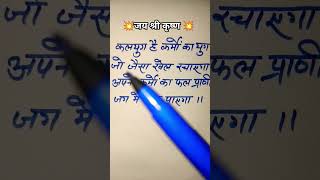 जय श्री कृष्ण
कलयुग है कर्मो का युग
जो जैसा खेल रचाएगा
अपने कर्मो का फल प्राणी
जग में पाएगा ।।